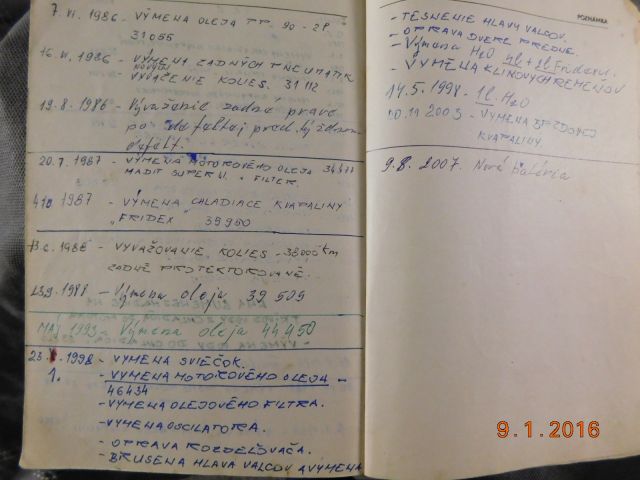 7. VI. 1986 - VÝMENA OLEJA PP. 90 - 2P.
31055
16. VI. 1986 - VÝMENA ZADNÝCH PNEUMATIK
NOVÝCH
- VYVÁŽENIE KOLIES. 31112
19. 8. 1986 - Vyváženie zadné pravé
po defekt.
20. 7. 1987 - VÝMENA MOTOROVÉHO OLEJA
MADIT SUPER + FILTER.
1987 - VÝMENA CHLADIACE KVAPALINY
"FRIDEX" 39980
1988 - VYVAŽOVANIE KOLIES - 38000 km
ZADNÉ PROTEKTOROVANÉ
9. 1988 - Výmena oleja 39 505
MÁJ 1993 - Výmena oleja 44450
23. 1998 - VYMENA SVIEČOK.
1. - VYMENA MOTOROVÉHO OLEJA -
46434
- VYMENA OLEJOVÉHO FILTRA.
- VYMENA OSCILATORA.
- OPRAVA ROZDELOVAČA.
- BRUSENA HLAVA VALCOV A VYMENA
POZNÁMKA
- TESNENIE HLAVY VALCOV.
- OPRAVA DVERE PREDNE.
- Výmena H2O + Fridexu.
- VYMENA KLINOVÝCH REMEŇOV
14. 5. 1998 - 1l H2O
11 2003 - VYMENA BRZDOVEJ
KVAPALINY.
9. 8. 2007. Nová batéria
9.1.2016